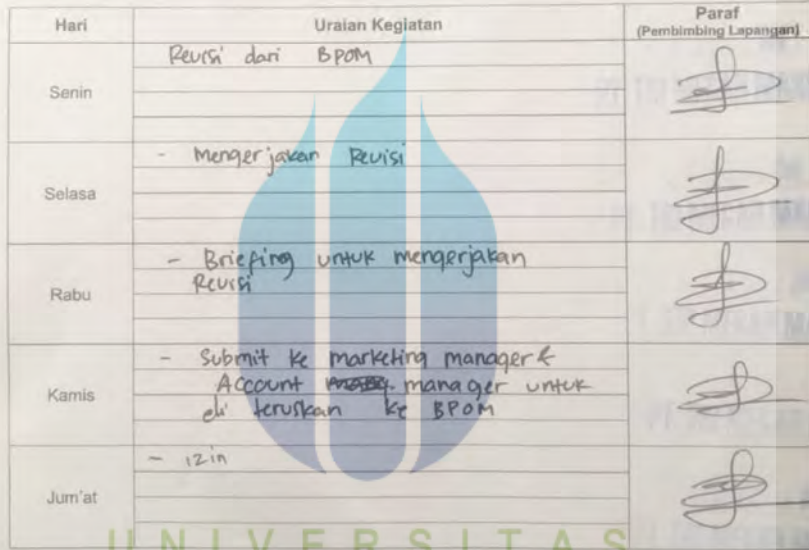 Hari Uraian Kegiatan Paraf
(Pembimbing Lapangan)
Senin
Revisi dari BPOM
Selasa
- Mengerjakan Revisi
Rabu
- Briefing untuk mengerjakan
Revisi
Kamis
- Submit ke marketing manager &
Account manager untuk
di teruskan ke BPOM
Jum'at
- izin
UNIVERSITAS